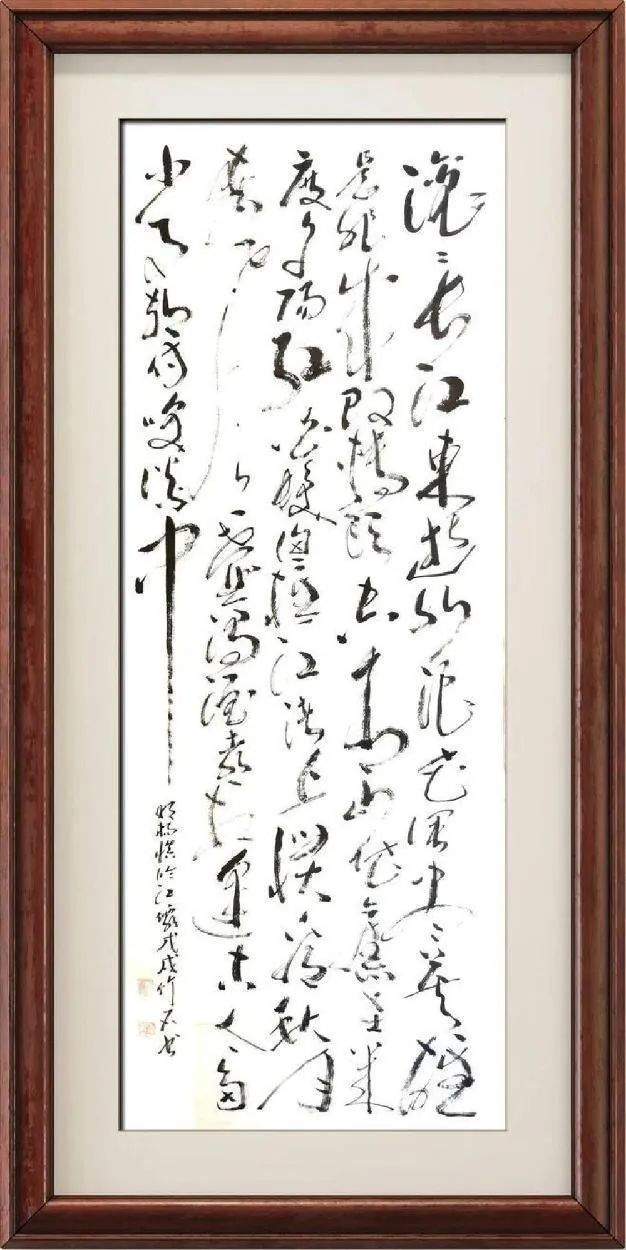 滚滚长江東逝水浪花淘尽英雄
是非成败转头空青山依旧在几
度夕阳红白髮渔樵江渚上惯看秋月
春风一壶浊酒喜相逢古今多
少事都付笑谈中
明杨慎临江仙戊戌竹石书